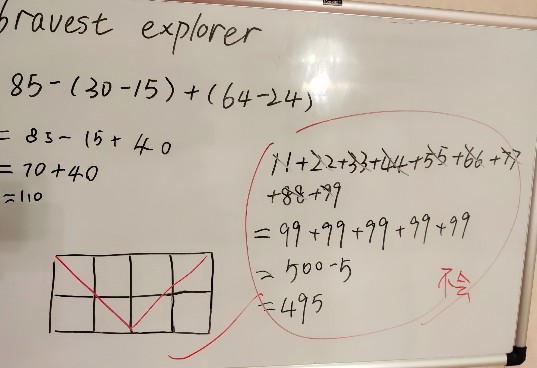 bravest explorer
85-(30-15)+(64-24)
= 85-15+40
= 70+40
=110
11+22+33+44+55+66+77
+88+99
= 99+99+99+99+99
= 500-5
= 495
不会